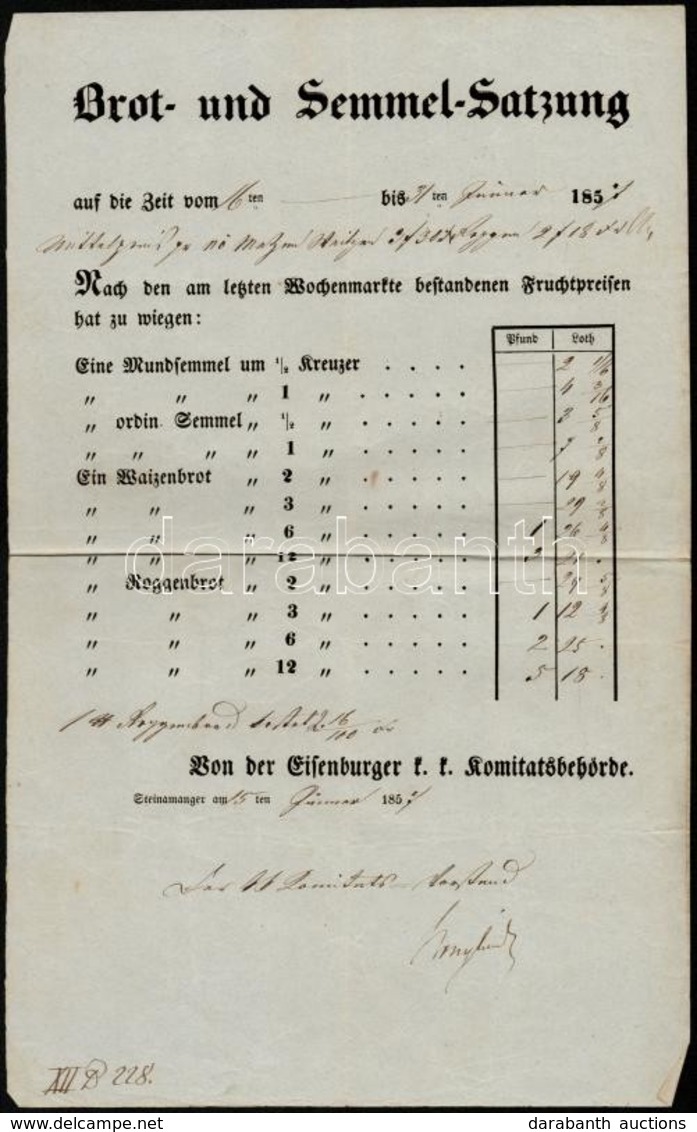 Brot- und Semmel-Satzung
auf die Zeit vom 16ten bis 31ten Jänner 1857
Mittelpreis pr nö Metzen Waitzen 3 f 30 Roggen 2 f 18
Nach den am letzten Wochenmarkte bestandenen Fruchtpreisen
hat zu wiegen:
Pfund Loth
Eine Mundsemmel um 1/2 Kreuzer . . . . 2 1/16
„ „ „ 1 „ . . . . . 4 3/16
„ ordin. Semmel „ 1/2 „ . . . . . 3 5/8
„ „ „ „ 1 „ . . . . . 7 2/8
Ein Waizenbrot „ 2 „ . . . . . 19 4/8
„ „ „ 3 „ . . . . . 29 2/8
„ „ „ 6 „ . . . . . 1 26 4/8
„ „ „ 12 „ . . . . . 3 21 .
„ Roggenbrot „ 2 „ . . . . . 29 5/8
„ „ „ 3 „ . . . . . 1 12 4/8
„ „ „ 6 „ . . . . . 2 25 .
„ „ „ 12 „ . . . . . 5 18 .
1 ℔ Roggenbrod kostet 2 16/100
Von der Eisenburger k. k. Komitatsbehörde.
Steinamanger am 15 ten Jänner 1857
Der kk Komitats-Vorstand
XII D 228.
darabanth
darabanth auctions